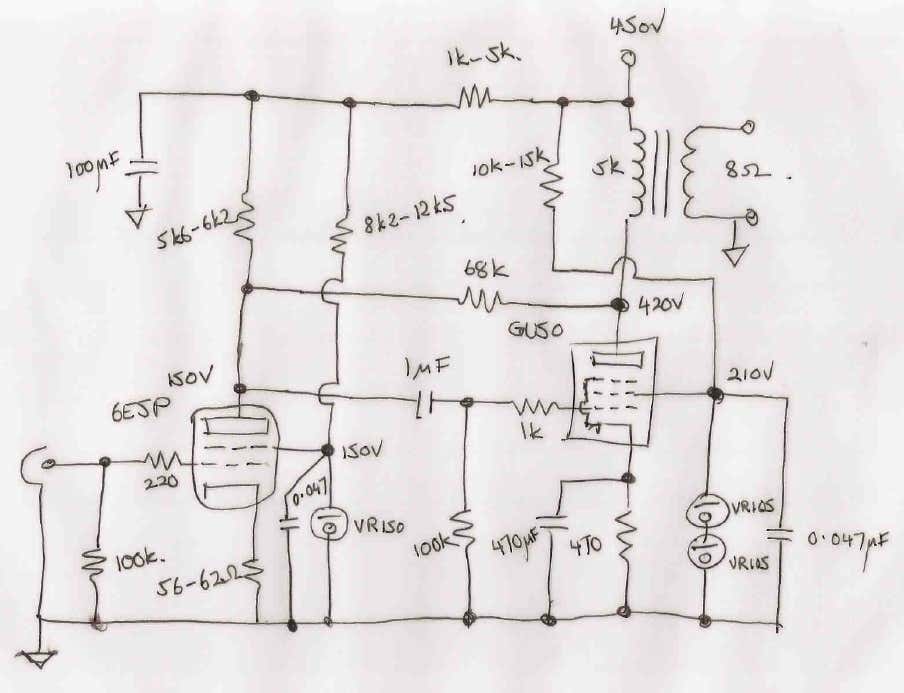 450V
1k-5k.
100µF
10k-15k
5k
8Ω.
5k6-6k2
8k2-12k5.
68k
420V
GU50
150V
1µF
210V
6EJP
1k
150V
220
0.047
VR150
VR105
100k.
100k
470µF
470
VR105
0.047µF
56-62Ω